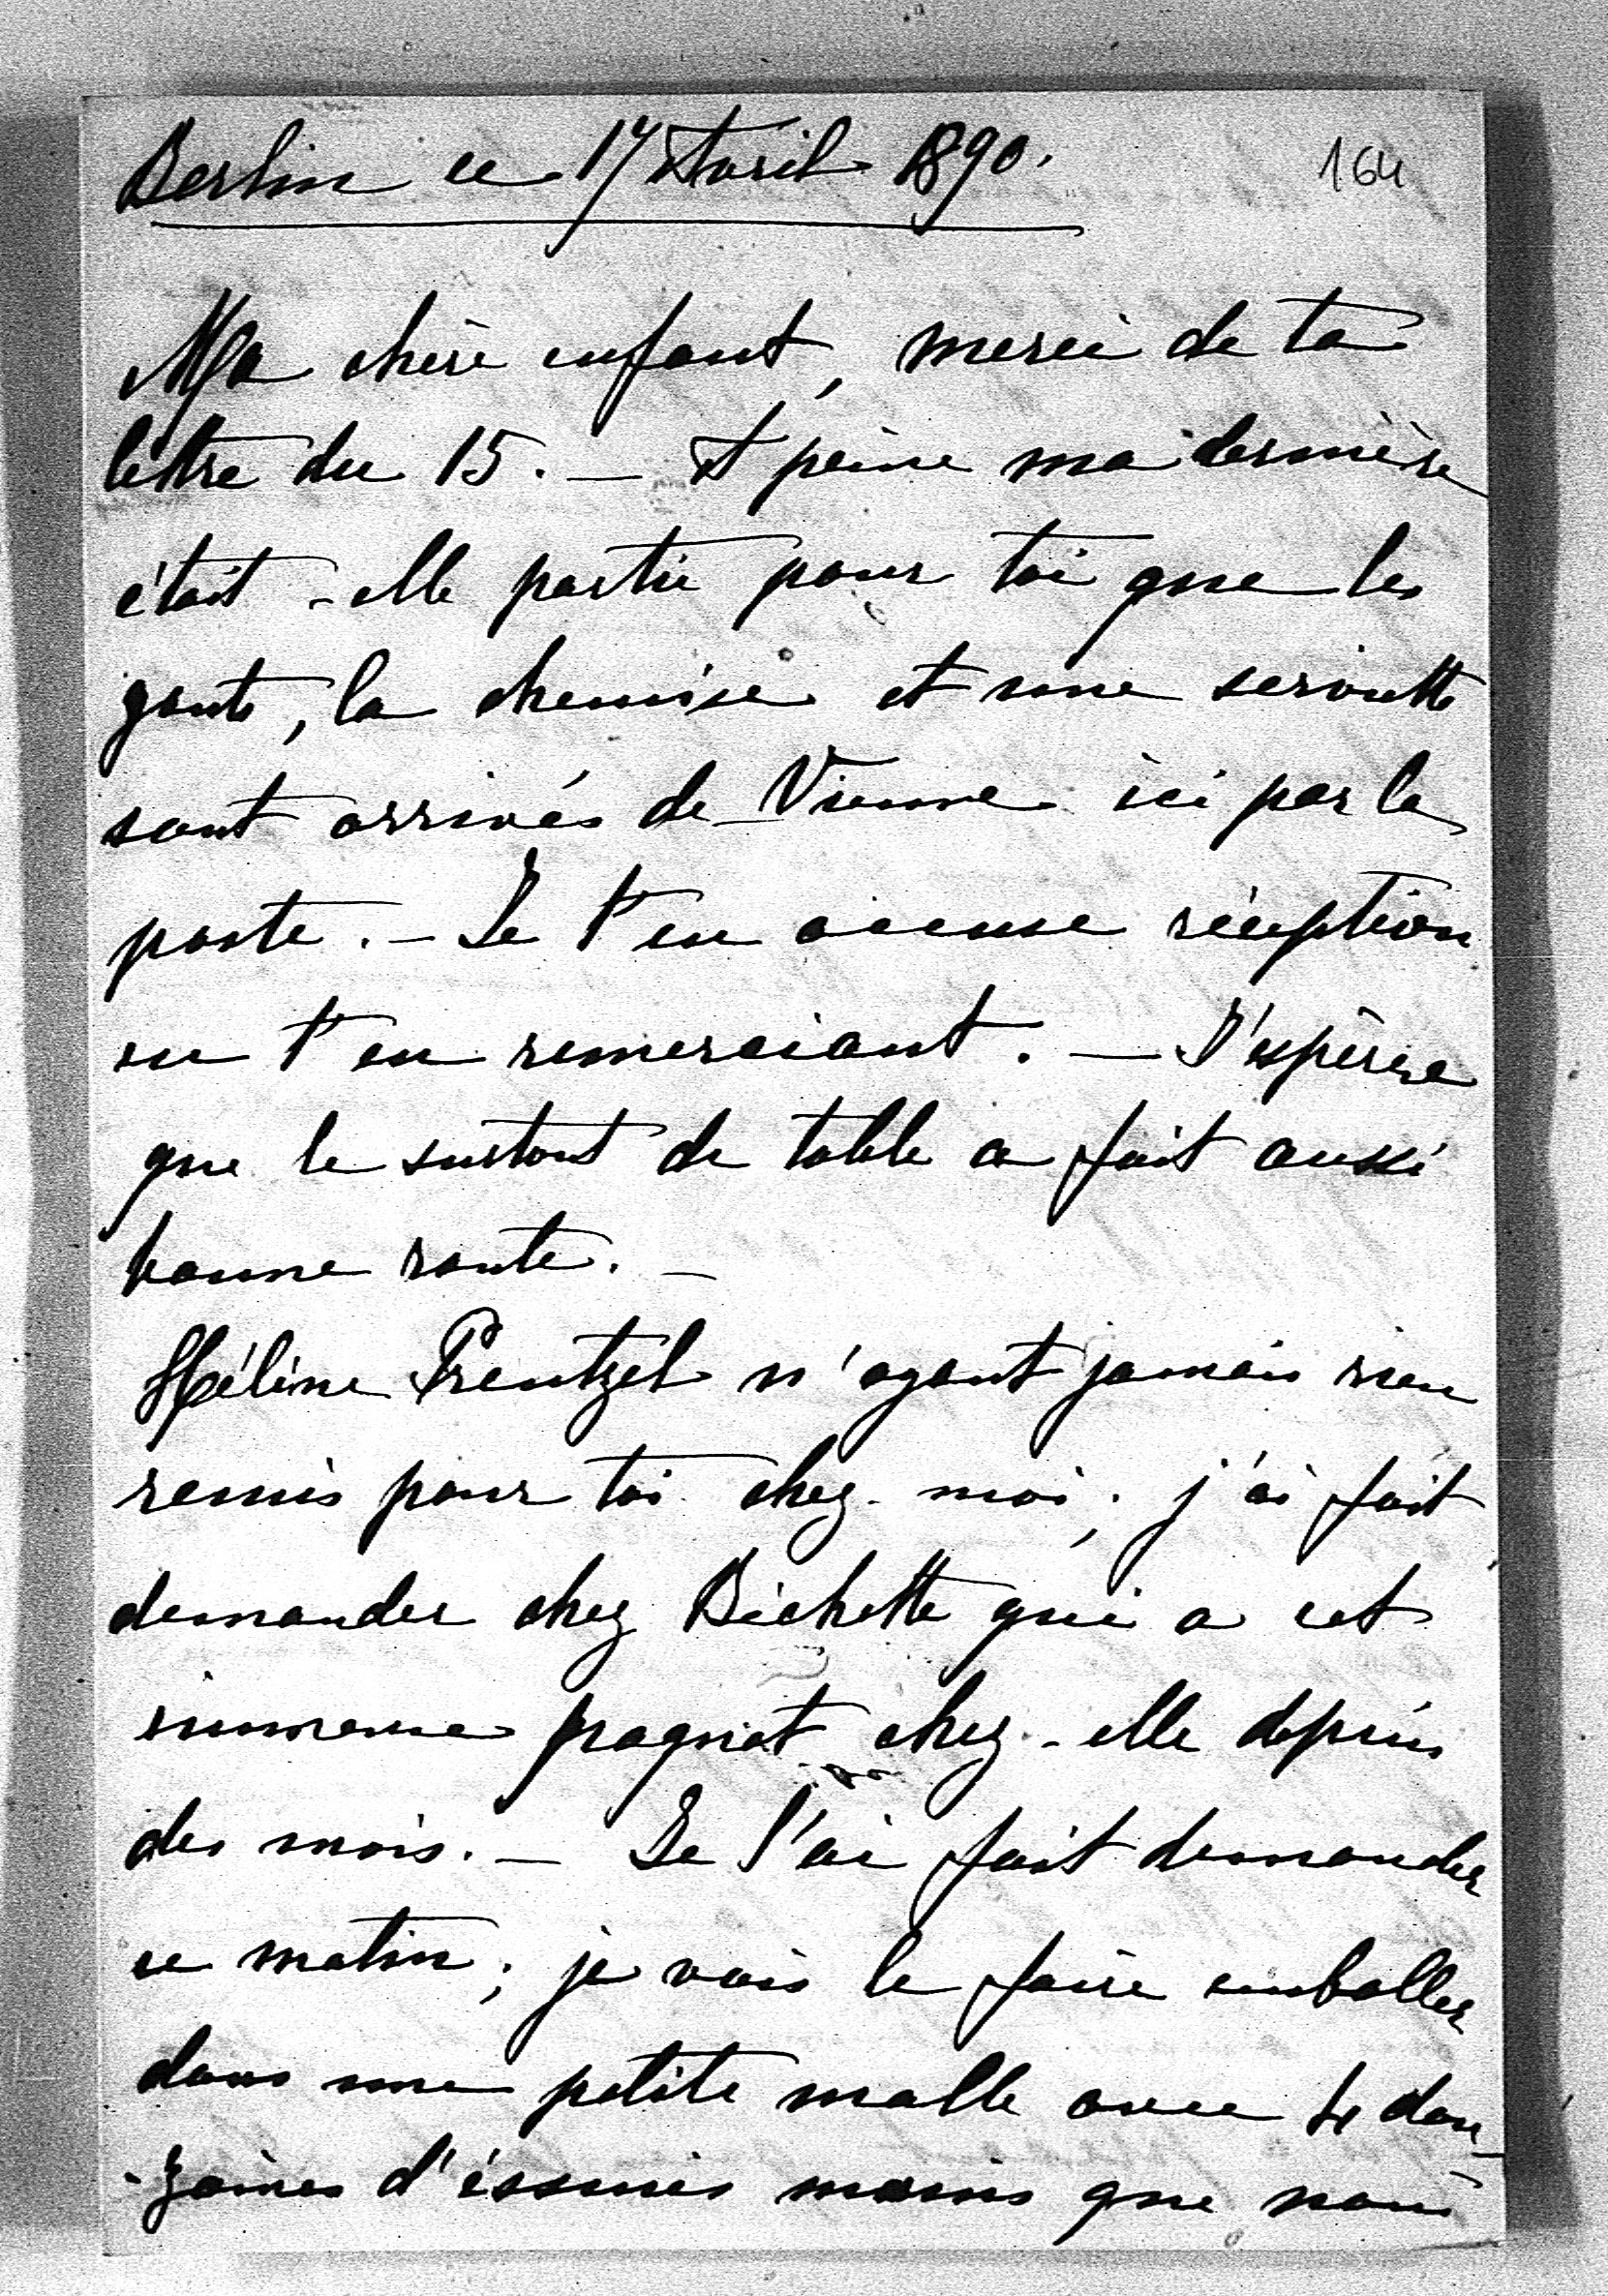 Berlin ce 17 Avril 1890.
164
Ma chère enfant, merci de ta
lettre du 15. — A peine ma dernière
était-elle partie pour toi que les
gants, la chemise et une serviette
sont arrivés de Vienne ici par la
poste. — Je t'en accuse réception
en t'en remerciant. — J'espère
que le surtout de table a fait aussi
bonne route. —
Hélène Prentzel n'ayant jamais rien
remis pour toi chez-moi, j'ai fait
demander chez Bichette qui a cet
immense paquet chez-elle depuis
des mois. — Je l'ai fait demander
ce matin; je vais le faire emballer
dans une petite malle avec 4 dou-
-zaines d'éssuies mains que nous